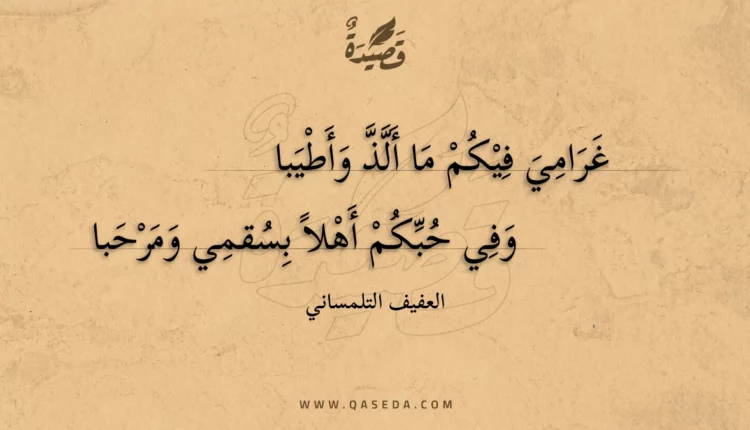 قَصِيْدَةٌ
غَرَامِيَ فِيْكُمْ مَا أَلَّذَّ وَأَطْيَبا
وَفِي حُبِّكُمْ أَهْلاً بِسُقمِي وَمَرْحَبا
العفيف التلمساني
WWW.QASEDA.COM